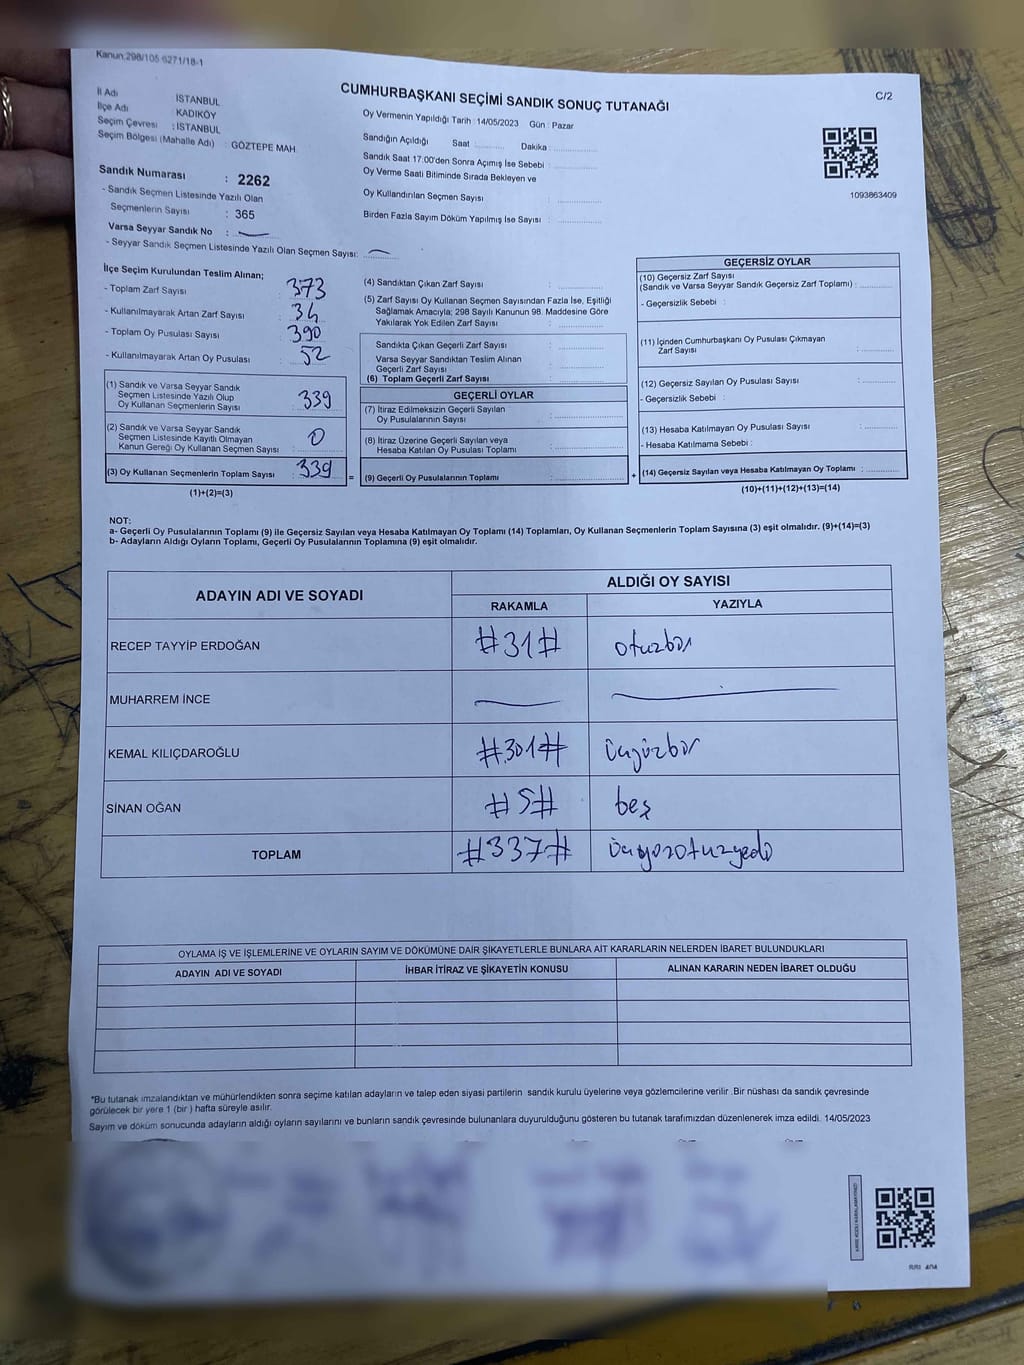 Kanun:298/105 6271/18-1
CUMHURBAŞKANI SEÇİMİ SANDIK SONUÇ TUTANAĞI
C/2
İl Adı İSTANBUL
İlçe Adı KADIKÖY
Seçim Çevresi : İSTANBUL
Seçim Bölgesi (Mahalle Adı) : GÖZTEPE MAH.
Oy Vermenin Yapıldığı Tarih : 14/05/2023 Gün : Pazar
Sandığın Açıldığı Saat Dakika :
Sandık Saat 17:00'den Sonra Açımış İse Sebebi :
Oy Verme Saati Bitiminde Sırada Bekleyen ve
Oy Kullandırılan Seçmen Sayısı :
Birden Fazla Sayım Döküm Yapılmış İse Sayısı :
1093863409
Sandık Numarası : 2262
- Sandık Seçmen Listesinde Yazılı Olan
Seçmenlerin Sayısı : 365
Varsa Seyyar Sandık No : —
- Seyyar Sandık Seçmen Listesinde Yazılı Olan Seçmen Sayısı: —
İlçe Seçim Kurulundan Teslim Alınan;
- Toplam Zarf Sayısı : 373
- Kullanılmayarak Artan Zarf Sayısı : 34
- Toplam Oy Pusulası Sayısı : 390
- Kullanılmayarak Artan Oy Pusulası : 52
(1) Sandık ve Varsa Seyyar Sandık
Seçmen Listesinde Yazılı Olup
Oy Kullanan Seçmenlerin Sayısı : 339
(2) Sandık ve Varsa Seyyar Sandık
Seçmen Listesinde Kayıtlı Olmayan
Kanun Gereği Oy Kullanan Seçmen Sayısı : 0
(3) Oy Kullanan Seçmenlerin Toplam Sayısı : 339
(1)+(2)=(3)
(4) Sandıktan Çıkan Zarf Sayısı :
(5) Zarf Sayısı Oy Kullanan Seçmen Sayısından Fazla İse, Eşitliği
Sağlamak Amacıyla; 298 Sayılı Kanunun 98. Maddesine Göre
Yakılarak Yok Edilen Zarf Sayısı :
Sandıkta Çıkan Geçerli Zarf Sayısı :
Varsa Seyyar Sandıktan Teslim Alınan
Geçerli Zarf Sayısı :
(6) Toplam Geçerli Zarf Sayısı :
GEÇERLİ OYLAR
(7) İtiraz Edilmeksizin Geçerli Sayılan
Oy Pusulalarının Sayısı :
(8) İtiraz Üzerine Geçerli Sayılan veya
Hesaba Katılan Oy Pusulası Toplamı :
= (9) Geçerli Oy Pusulalarının Toplamı :
GEÇERSİZ OYLAR
(10) Geçersiz Zarf Sayısı
(Sandık ve Varsa Seyyar Sandık Geçersiz Zarf Toplamı) :
- Geçersizlik Sebebi :
(11) İçinden Cumhurbaşkanı Oy Pusulası Çıkmayan
Zarf Sayısı :
(12) Geçersiz Sayılan Oy Pusulası Sayısı :
- Geçersizlik Sebebi :
(13) Hesaba Katılmayan Oy Pusulası Sayısı :
- Hesaba Katılmama Sebebi :
+ (14) Geçersiz Sayılan veya Hesaba Katılmayan Oy Toplamı :
(10)+(11)+(12)+(13)=(14)
NOT:
a- Geçerli Oy Pusulalarının Toplamı (9) ile Geçersiz Sayılan veya Hesaba Katılmayan Oy Toplamı (14) Toplamları, Oy Kullanan Seçmenlerin Toplam Sayısına (3) eşit olmalıdır. (9)+(14)=(3)
b- Adayların Aldığı Oyların Toplamı, Geçerli Oy Pusulalarının Toplamına (9) eşit olmalıdır.
ADAYIN ADI VE SOYADI ALDIĞI OY SAYISI
RAKAMLA YAZIYLA
RECEP TAYYİP ERDOĞAN #31# otuzbir
MUHARREM İNCE — —
KEMAL KILIÇDAROĞLU #301# üçyüzbir
SİNAN OĞAN #5# beş
TOPLAM #337# üçyüzotuzyedi
OYLAMA İŞ VE İŞLEMLERİNE VE OYLARIN SAYIM VE DÖKÜMÜNE DAİR ŞİKAYETLERLE BUNLARA AİT KARARLARIN NELERDEN İBARET BULUNDUKLARI
ADAYIN ADI VE SOYADI İHBAR İTİRAZ VE ŞİKAYETİN KONUSU ALINAN KARARIN NEDEN İBARET OLDUĞU
*Bu tutanak imzalandıktan ve mühürlendikten sonra seçime katılan adayların ve talep eden siyasi partilerin sandık kurulu üyelerine veya gözlemcilerine verilir. Bir nüshası da sandık çevresinde
görülecek bir yere 1 (bir) hafta süreyle asılır.
Sayım ve döküm sonucunda adayların aldığı oyların sayılarını ve bunların sandık çevresinde bulunanlara duyurulduğunu gösteren bu tutanak tarafımızdan düzenlenerek imza edildi. 14/05/2023